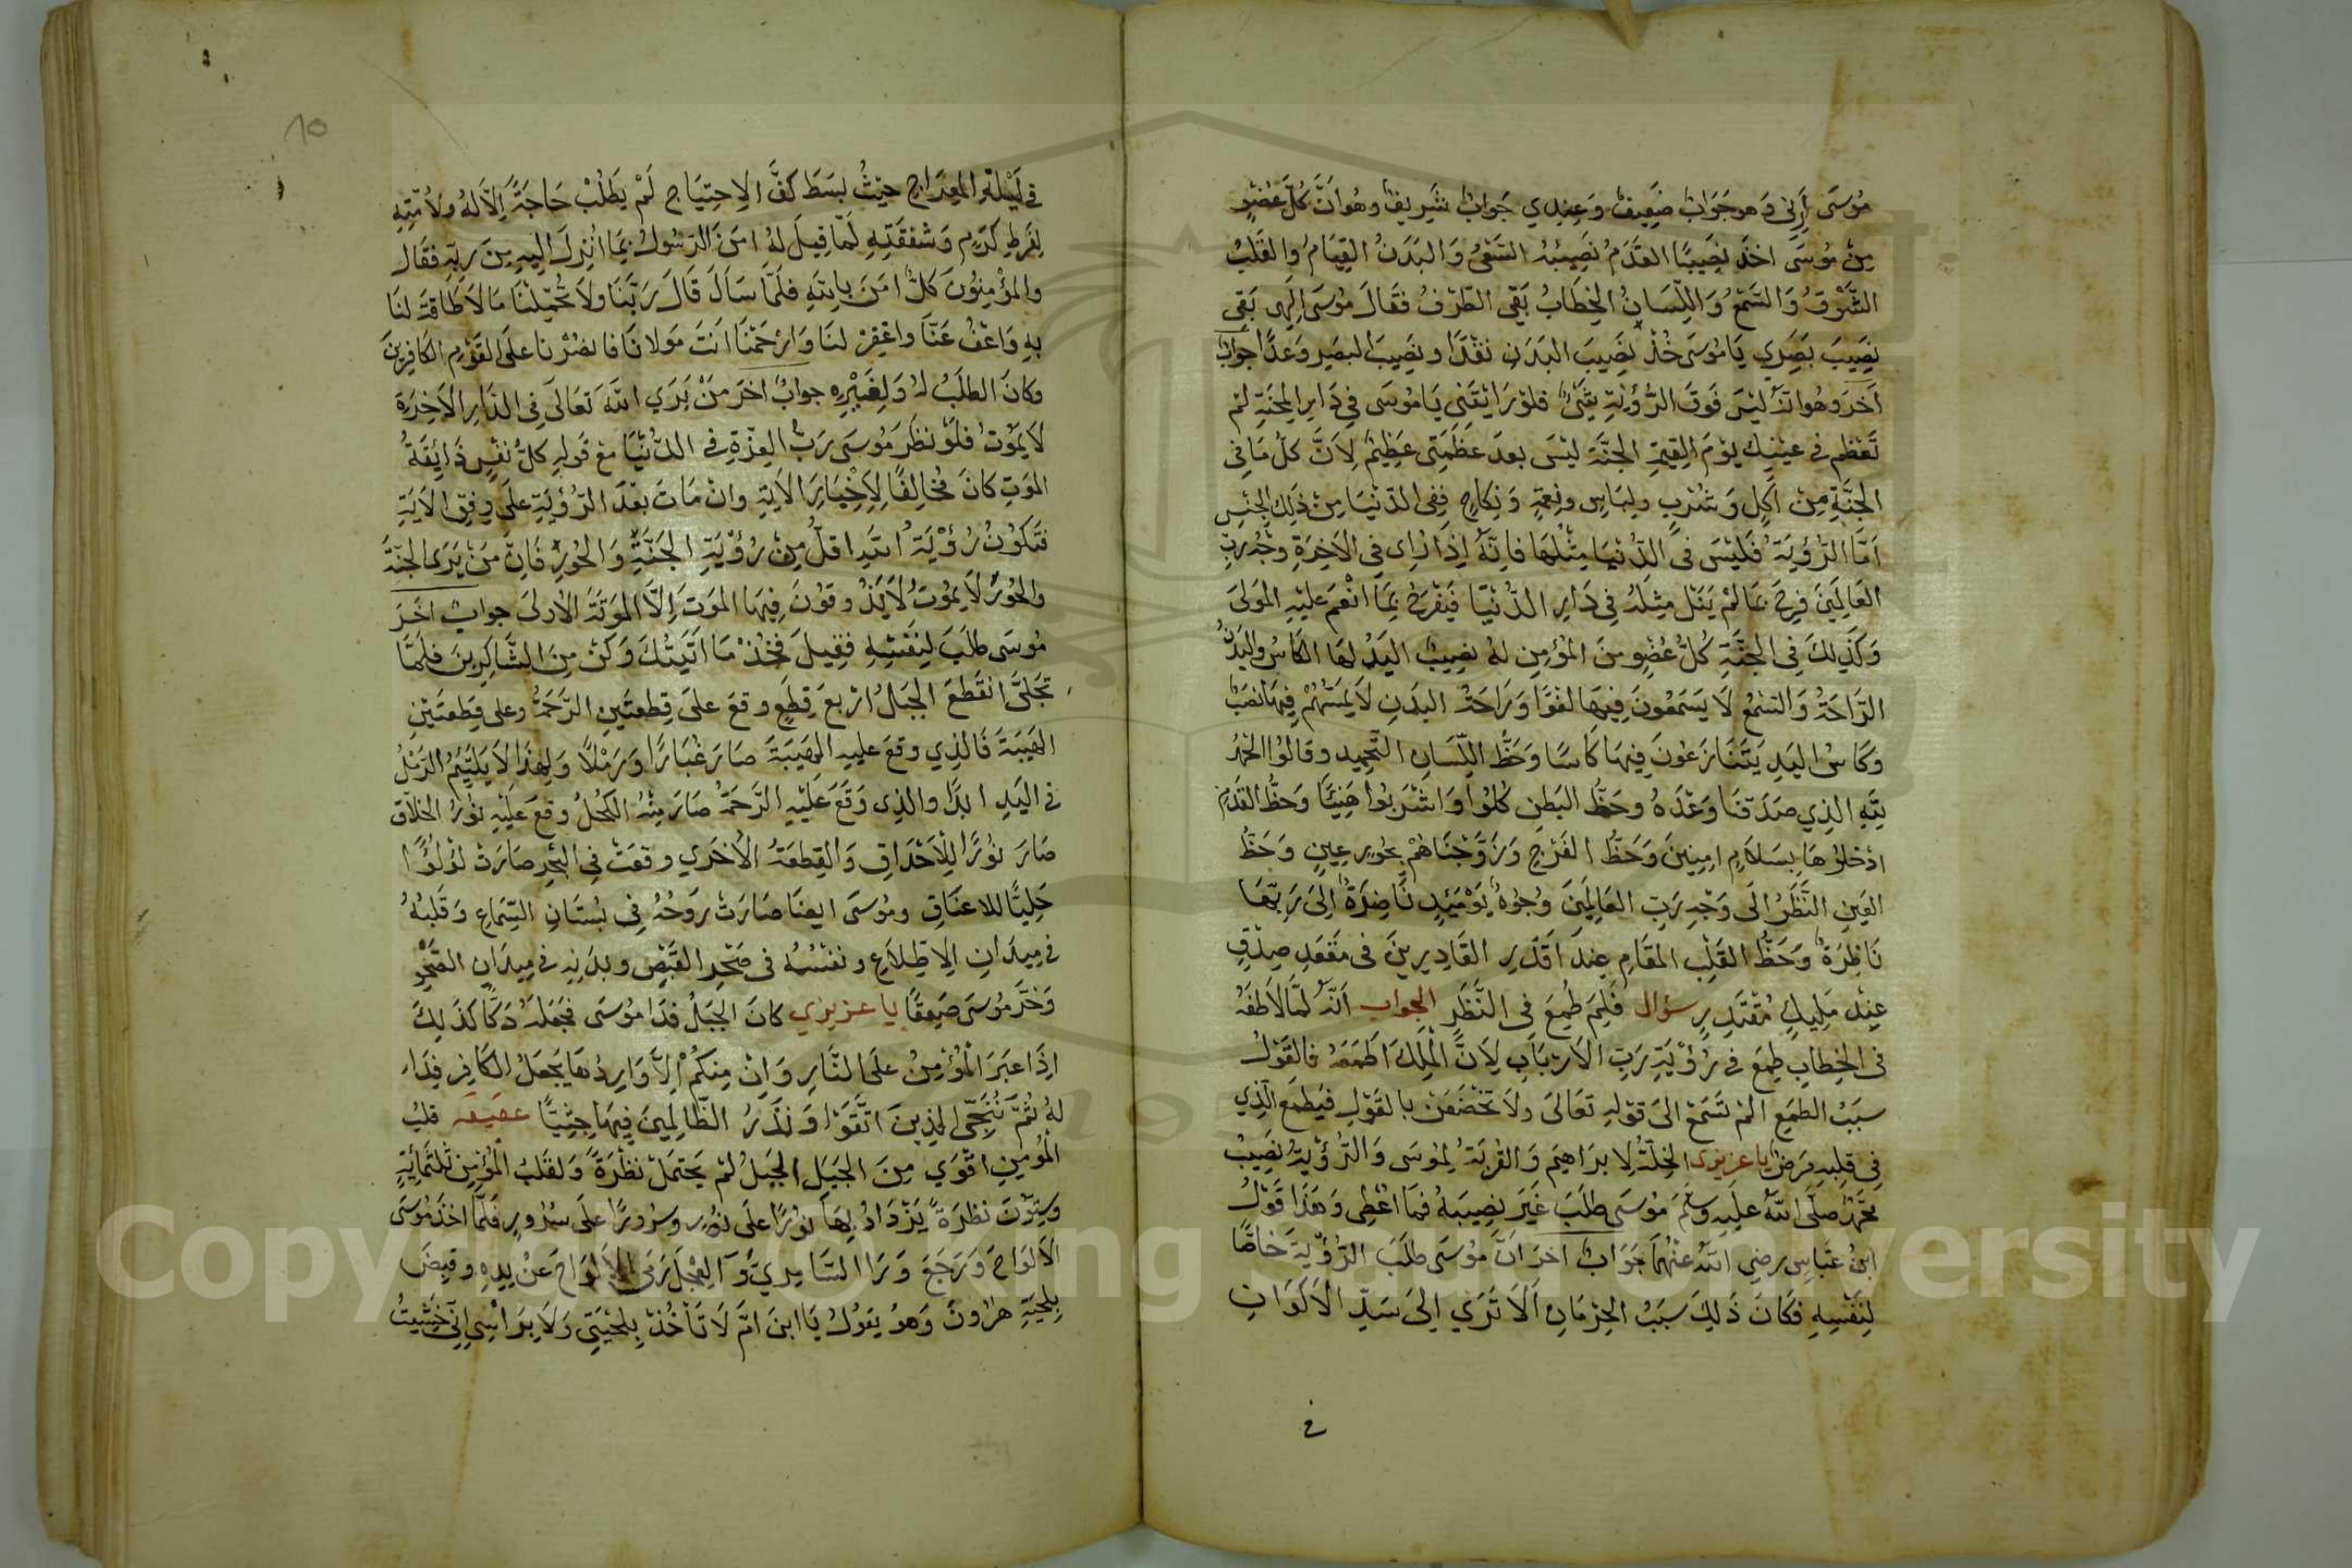 موسى أرني وهو جواب ضعيف وعندي جواب شريف وهو ان كل عضو
من موسى اخذ نصيبا القدم نصيبه السعي والبدن القيام والقلب
الشوق والسمع واللسان الخطاب بقي الطرف فقال موسى الهي بقي
نصيب بصري يا موسى خذ نصيب البدن نقدا ونصيب البصر وعدا جواب
آخر وهو انه ليس فوق الرؤية شيء فلو رأيتني يا موسى في دار المحنة لم
تعظم في عينيك يوم القيمة الجنة ليس بعد عظمتي عظيم لان كل ما في
الجنة من اكل وشرب ولباس ونعمة ونكاح ففي الدنيا من ذلك الجنس
اما الرؤية فليس في الدنيا مثلها فانه اذا راى في الاخرة وجه رب
العالمين فرح بما لم ينل مثله في دار الدنيا فيفرح بما انعم عليه المولى
وكذلك في الجنة كل عضو من المؤمن له نصيب اليد لها الكاس والبدن
الراحة والسمع لا يسمعون فيها لغوا وراحة البدن لا يمسهم فيها نصب
وكاس اليد يتنازعون فيها كاسا وحظ اللسان التحميد وقالوا الحمد
لله الذي صدقنا وعده وحظ البطن كلوا واشربوا هنيئا وحظ القدم
ادخلوها بسلام امنين وحظ الفرج وزوجناهم بحور عين وحظ
العين النظر الى وجه رب العالمين وجوه يومئذ ناضرة الى ربها
ناظرة وحظ القلب المقام عند اقدر القادرين في مقعد صدق
عند مليك مقتدر سؤال فلم طمع في النظر الجواب انه لما لاطفه
في الخطاب طمع في رؤية رب الارباب لان الملك اطمعه فالقول
سبب الطمع الم تسمع الى قوله تعالى ولا تخضعن بالقول فيطمع الذي
في قلبه مرض يا عزيزي الخلة لابراهيم والقربة لموسى والرؤية نصيب
محمد صلى الله عليه وسلم موسى طلب غير نصيبه فما اعطي وهذا قول
ابن عباس رضي الله عنهما جواب اخر ان موسى طلب الرؤية خاصا
لنفسه فكان ذلك سبب الحرمان الا ترى الى سيد الاكوان
في
10
في ليلة المعراج حيث بسط كف الاحتياج لم يطلب حاجة الا له ولامته
لفرط كرم وشفقته لما قيل له امن الرسول بما انزل اليه من ربه فقال
والمؤمنون كل امن بالله فلما سال قال ربنا ولا تحملنا ما لا طاقة لنا
به واعف عنا واغفر لنا وارحمنا انت مولانا فانصرنا على القوم الكافرين
وكان الطلب له ولغيره جواب اخر من يرى الله تعالى في الدار الاخرة
لا يموت فلو نظر موسى رب العزة في الدنيا مع قوله كل نفس ذائقة
الموت كان مخالفا لاخبار الاية وان مات بعد الرؤية على وفق الاية
فتكون رؤية الله اقل من رؤية الجنة والحور فان من يرى الجنة
والحور لا يموت لا يذوقون فيها الموت الا الموتة الاولى جواب اخر
موسى طلب لنفسه فقيل فخذ ما اتيتك وكن من الشاكرين فلما
تجلى انقطع الجبل اربع قطع وقع على قطعتين الرحمة وعلى قطعتين
الهيبة فالذي وقع عليه الهيبة صار غبارا ورملا ولهذا لا يلتئم الرمل
في اليد ابدا والذي وقع عليه الرحمة صار منه الكحل وقع عليه نور الخلاق
صار نورا للاحداق والقطعة الاخرى وقعت في البحر صارت لؤلؤا
حليا للاعناق وموسى ايضا صارت روحه في بستان السماع وقلبه
في ميدان الاطلاع ونفسه في صحر القبض وبدنه في ميدان الصحو
وخر موسى صعقا يا عزيزي كان الجبل فدا موسى فجعله دكا كذلك
اذا عبر المؤمن على النار وان منكم الا واردها يجعل الكافر فداء
له ثم ننجي الذين اتقوا ونذر الظالمين فيها جثيا قلب
المؤمن اقوى من الجبل الجبل لم يحتمل نظرة ولقلب المؤمن ثلثمائة
وستون نظرة يزداد بها نورا على نور وسرورا على سرور فلما اخذ موسى
الالواح ورجع ورا السامري والعجل رمى الالواح عن يده وقبض
بلحية هرون وهو يقول يا ابن ام لا تأخذ بلحيتي ولا براسي اني خشيت
Copyright © King Saud University